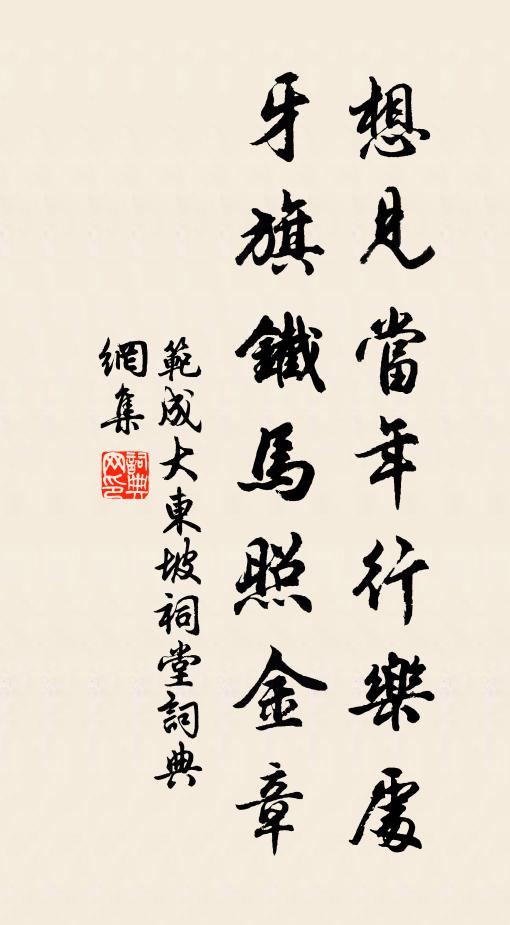 想見當年行樂處
牙旗鐵馬照金章
範成大東坡祠堂詞典
網集
詞典網印